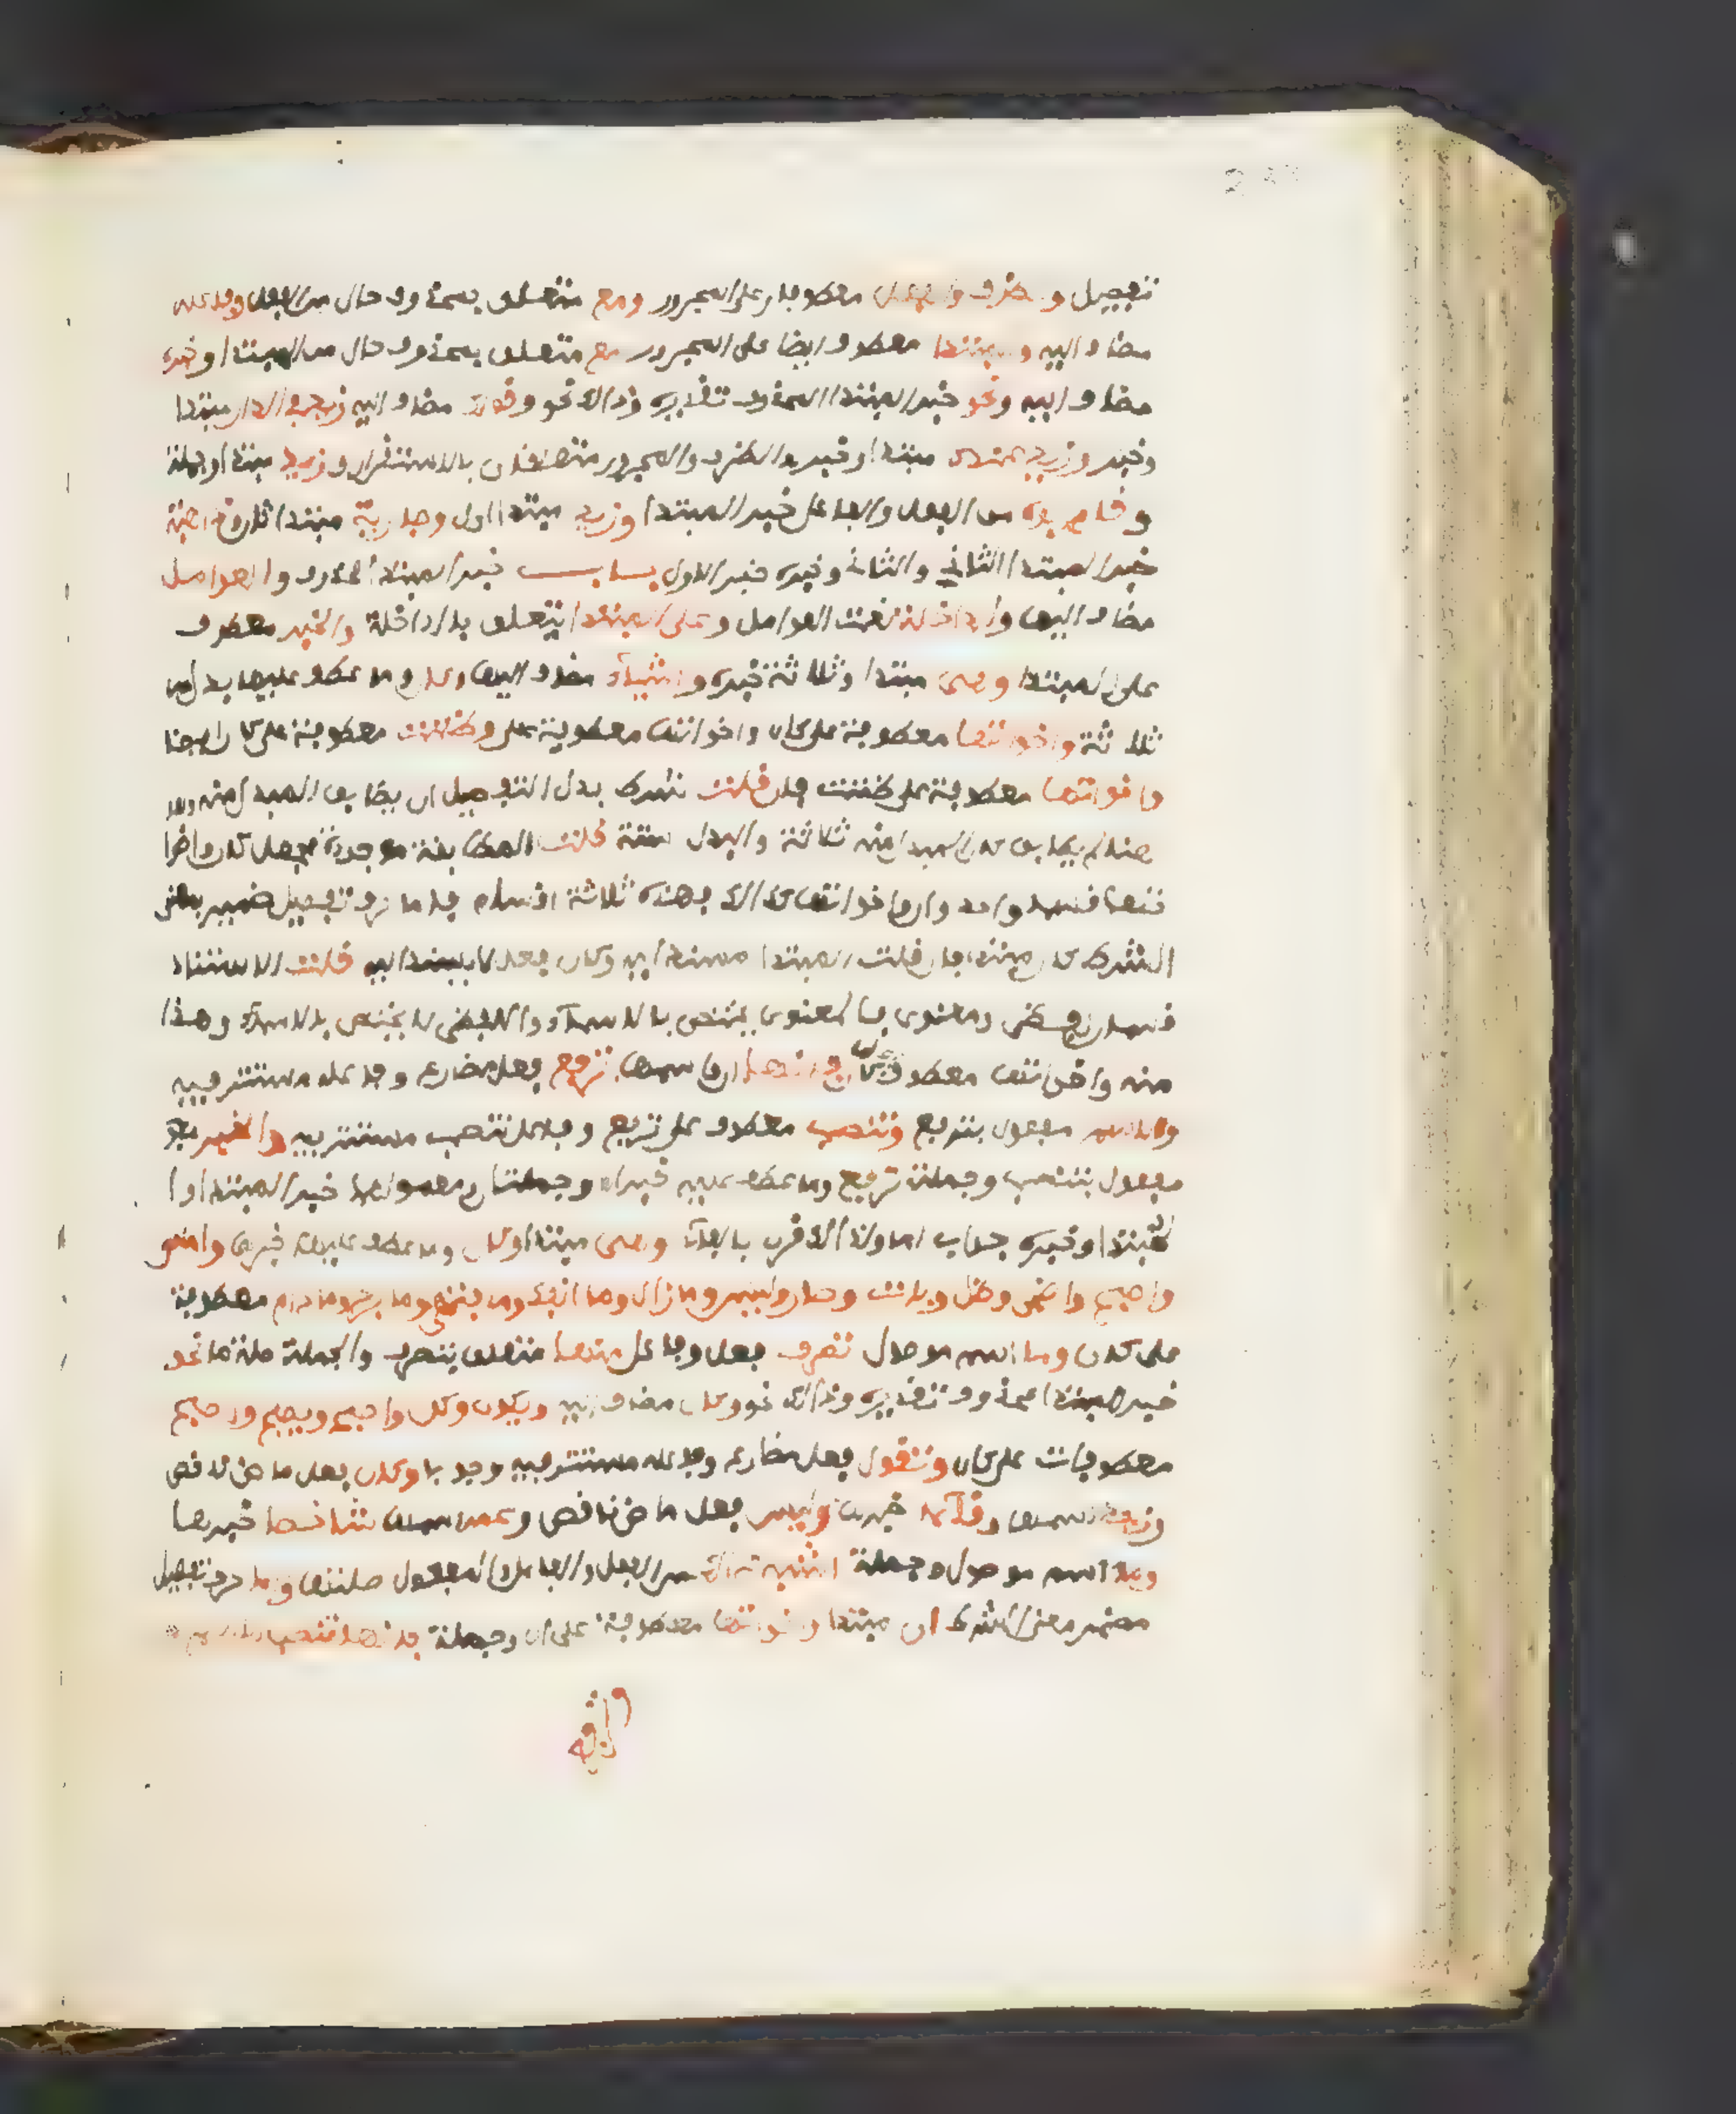 تفصيل و ظرف والفعل معطوفان على المجرور ومع متعلق بمحذوف حال من الفعل وفاعله
مضاف اليه والمبتدا معطوف ايضا على المجرور مع متعلق بمحذوف حال من المبتدا وخبره
مضاف اليه ونحو خبر المبتدا المحذوف تقديره وذالك نحو وقولك مضاف اليه زيد في الدار مبتدا
وخبر وزيد عندك مبتدا وخبر والظرف والمجرور متعلقان بالاستقرار وزيد مبتدا وجملة
وقام ابوه من الفعل والفاعل خبر المبتدا وزيد مبتدا اول وجاريته مبتدا ثان وذاهبة
خبر المبتدا الثاني والثاني وخبره خبر الاول باب خبر المبتدا المحذوف والعوامل
مضاف اليها والداخلة نعت العوامل وعلى المبتدا يتعلق بالداخلة والخبر معطوف
على المبتدا وهي مبتدا وثلاثة خبره واشياء مضاف اليها وكان وما عطف عليها بدل من
ثلاثة واخواتها معطوفة على كان واخواتها معطوفة على وظننت معطوفة على كان ايضا
واخواتها معطوفة على ظننت فان قلت شرط بدل التفصيل ان يطابق المبدل منه
هنا لم يطابق لان المبدل منه ثلاثة والبدل ستة قلت المطابقة موجودة فجعل كان واخوا
تها قسما واحد وان واخواتها كذالك فهذه ثلاثة اقسام فاما حرف تفصيل ضمير معنى
الشرط كان مبتدا فان قلت المبتدا مسند اليه وكان فعل لا يسند اليه قلت الاسناد
قسمان لفظي ومعنوي فالمعنوي يختص بالاسماء واللفظي لا يختص بالاسماء وهذا
منه واخواتها معطوف على كان فانها ان واسمها ترفع فعل مضارع وفاعله مستتر فيه
والاسم مفعول بترفع وتنصب معطوف على ترفع وفاعل تنصب مستتر فيه والخبر
مفعول بتنصب وجملة ترفع وما عطف عليه خبران وجملة ان ومعمولها خبر المبتدا و
المبتدا وخبره جواب اما ولذالك قرن بالفاء وهي مبتدا وكان وما عطف عليها خبرها وامسى
واصبح واضحى وظل وبات وصار وليس وما زال وما انفك وما فتئ وما برح وما دام معطوفة
على كان وما اسم موصول تصرف فعل وفاعل منها متعلق بتصرف والجملة صلة ما نحو
خبر المبتدا محذوف تقديره وذالك نحو وكان مضاف اليه ويكون وكن واصبح ويصبح واصبح
معطوفات على كان وتقول فعل مضارع وفاعله مستتر فيه وجوبا وكان فعل ماض ناقص
وزيد اسمها وقائما خبرها وليس فعل ماض ناقص وعمرو اسمها شاخصا خبرها
وما اسم موصول وجملة اشبه ذالك من الفعل والفاعل والمفعول صلتها واما حرف تفصيل
مضمر معنى الشرط ان مبتدا واخواتها معطوفة على ان وجملة فانها تنصب الاسم